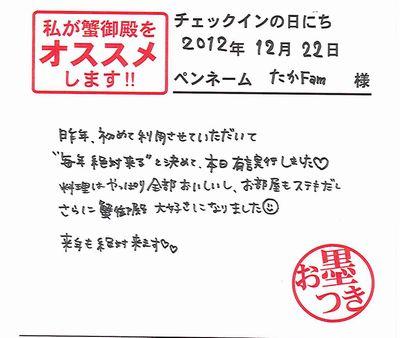 私が蟹御殿を
オススメ
します!!
チェックインの日にち
2012年 12月 22日
ペンネーム たかFam 様
昨年、初めて利用させていただいて
"毎年絶対来る"と決めて、本日有言実行しました♡
料理はやっぱり全部おいしいし、お部屋もステキだし
さらに蟹御殿 大好きになりました☺
来年も絶対来ます♡♡
お墨つき